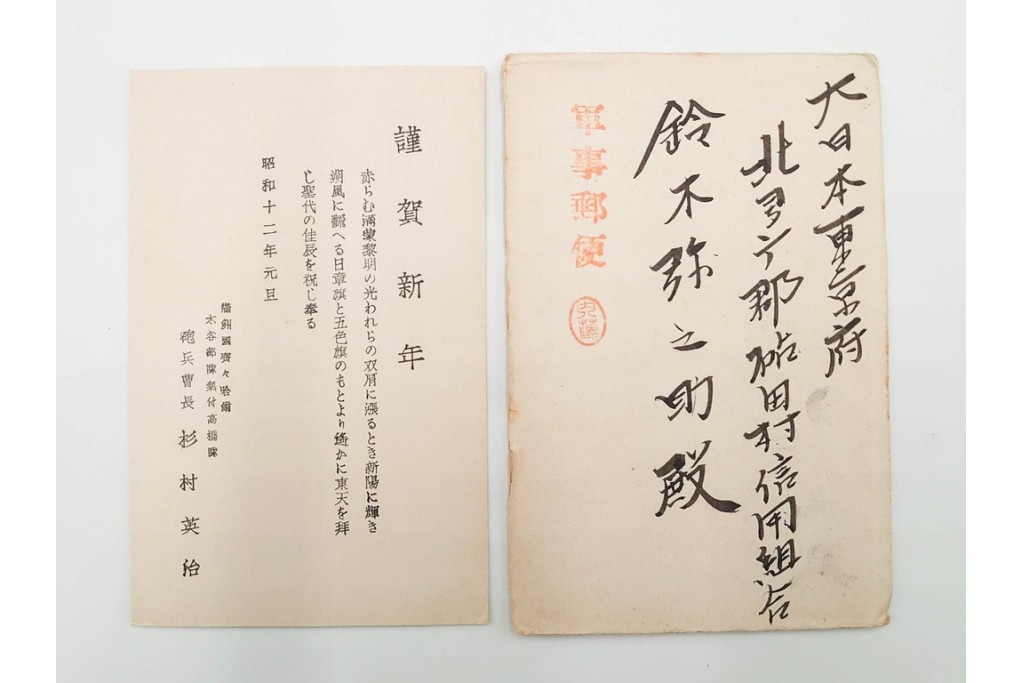 謹賀新年
赤らむ満蒙黎明の光われらの双肩に漲るとき新陽に輝き
朔風に飜へる日章旗と五色旗のもとより遙かに東天を拜
し聖代の佳辰を祝し奉る
昭和十二年元旦
滿洲國齊々哈爾
木谷部隊氣付高橋隊
砲兵曹長 杉村英治
大日本東京府
北多摩郡砧田村信用組合
鈴木弥之助殿
軍事郵便